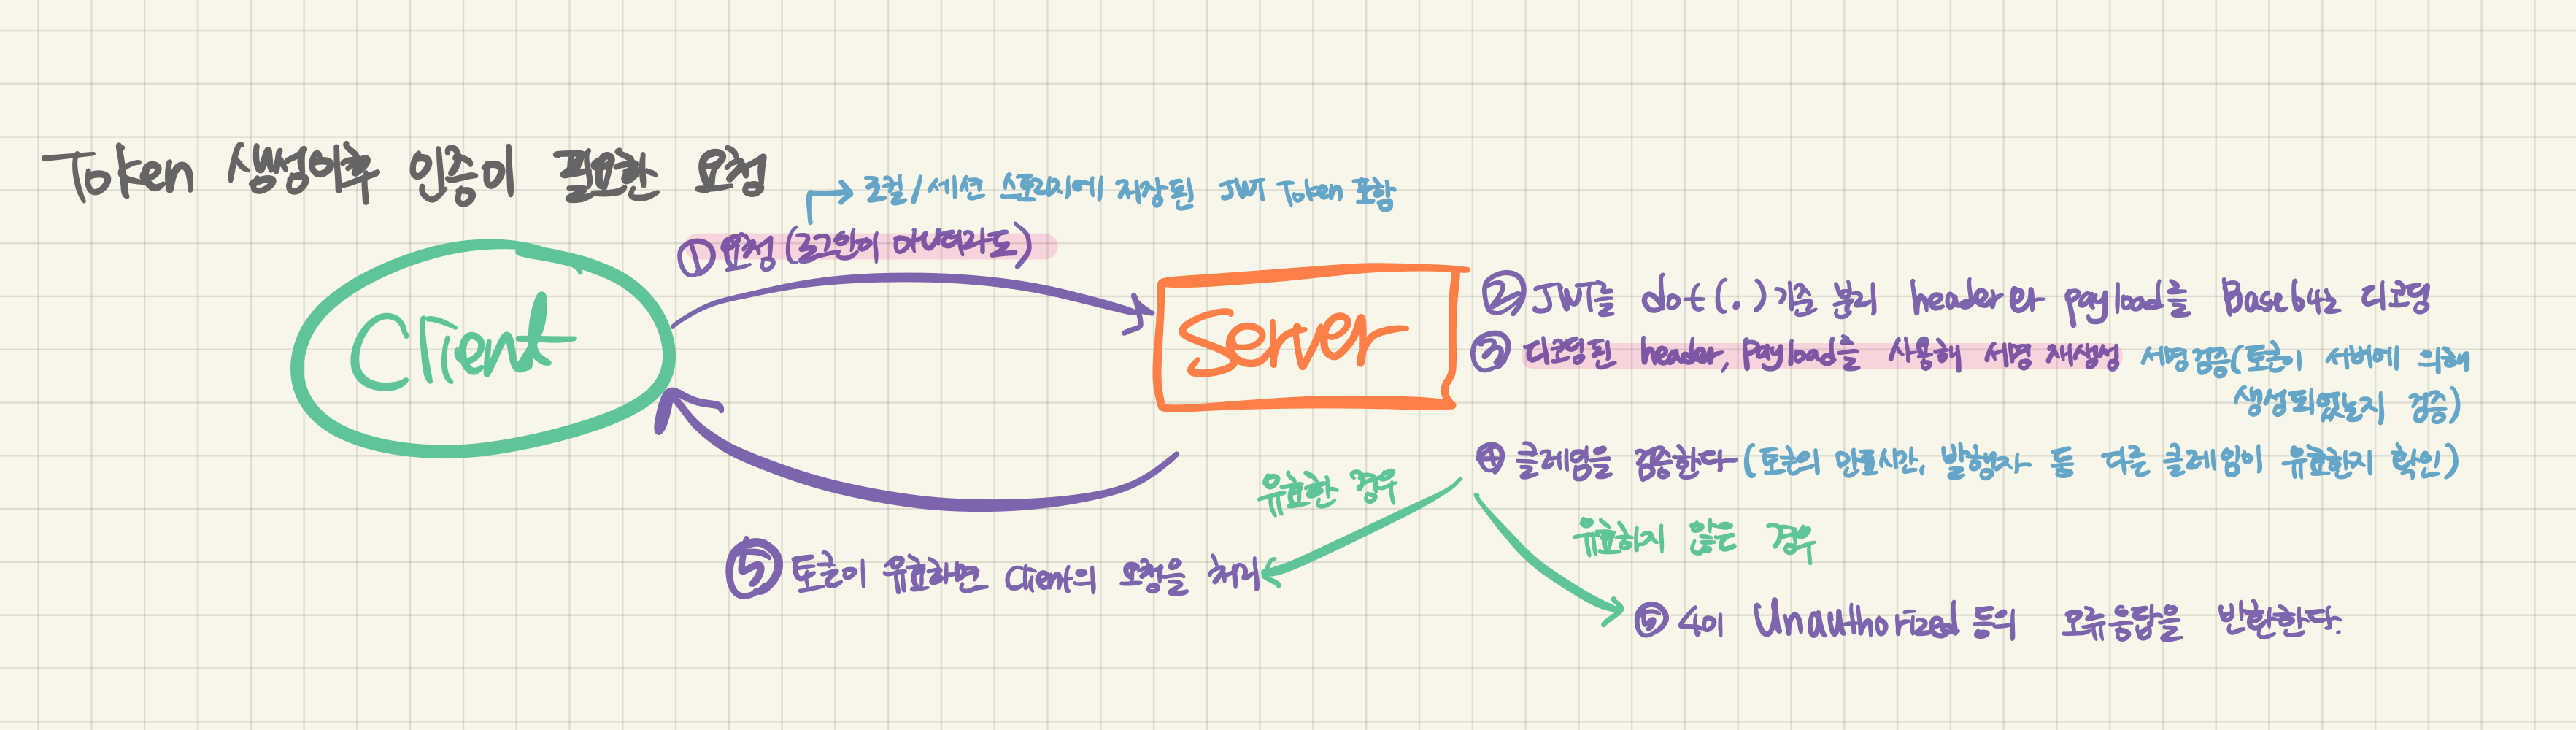 Token 생성이후 인증이 필요한 요청
→ 로컬/세션 스토리지에 저장된 JWT Token 포함
① 요청 (로그인이 아니더라도)
Client
Server
② JWT를 dot(.)기준 분리 header와 payload를 Base64로 디코딩
③ 디코딩된 header, payload를 사용해 서명 재생성 서명검증(토큰이 서버에 의해
생성되었는지 검증)
④ 클레임을 검증한다 (토큰의 만료시간, 발행자 등 다른 클레임이 유효한지 확인)
유효한 경우
유효하지 않은 경우
⑤ 토큰이 유효하면 Client의 요청을 처리
⑤ 401 Unauthorized 등의 오류응답을 반환한다.